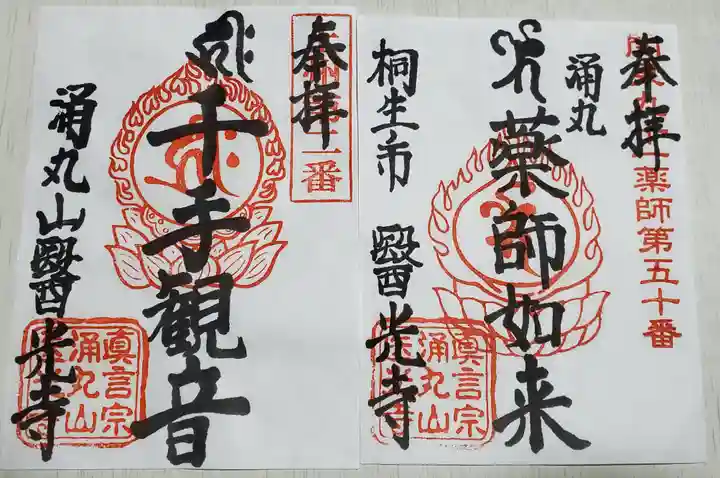 奉拝
薬師第五十番
涌丸
薬師如来
桐生市
醫光寺
真言宗
涌丸山
奉拝
二番
千手観音
涌丸山醫光寺
眞言宗
涌丸山